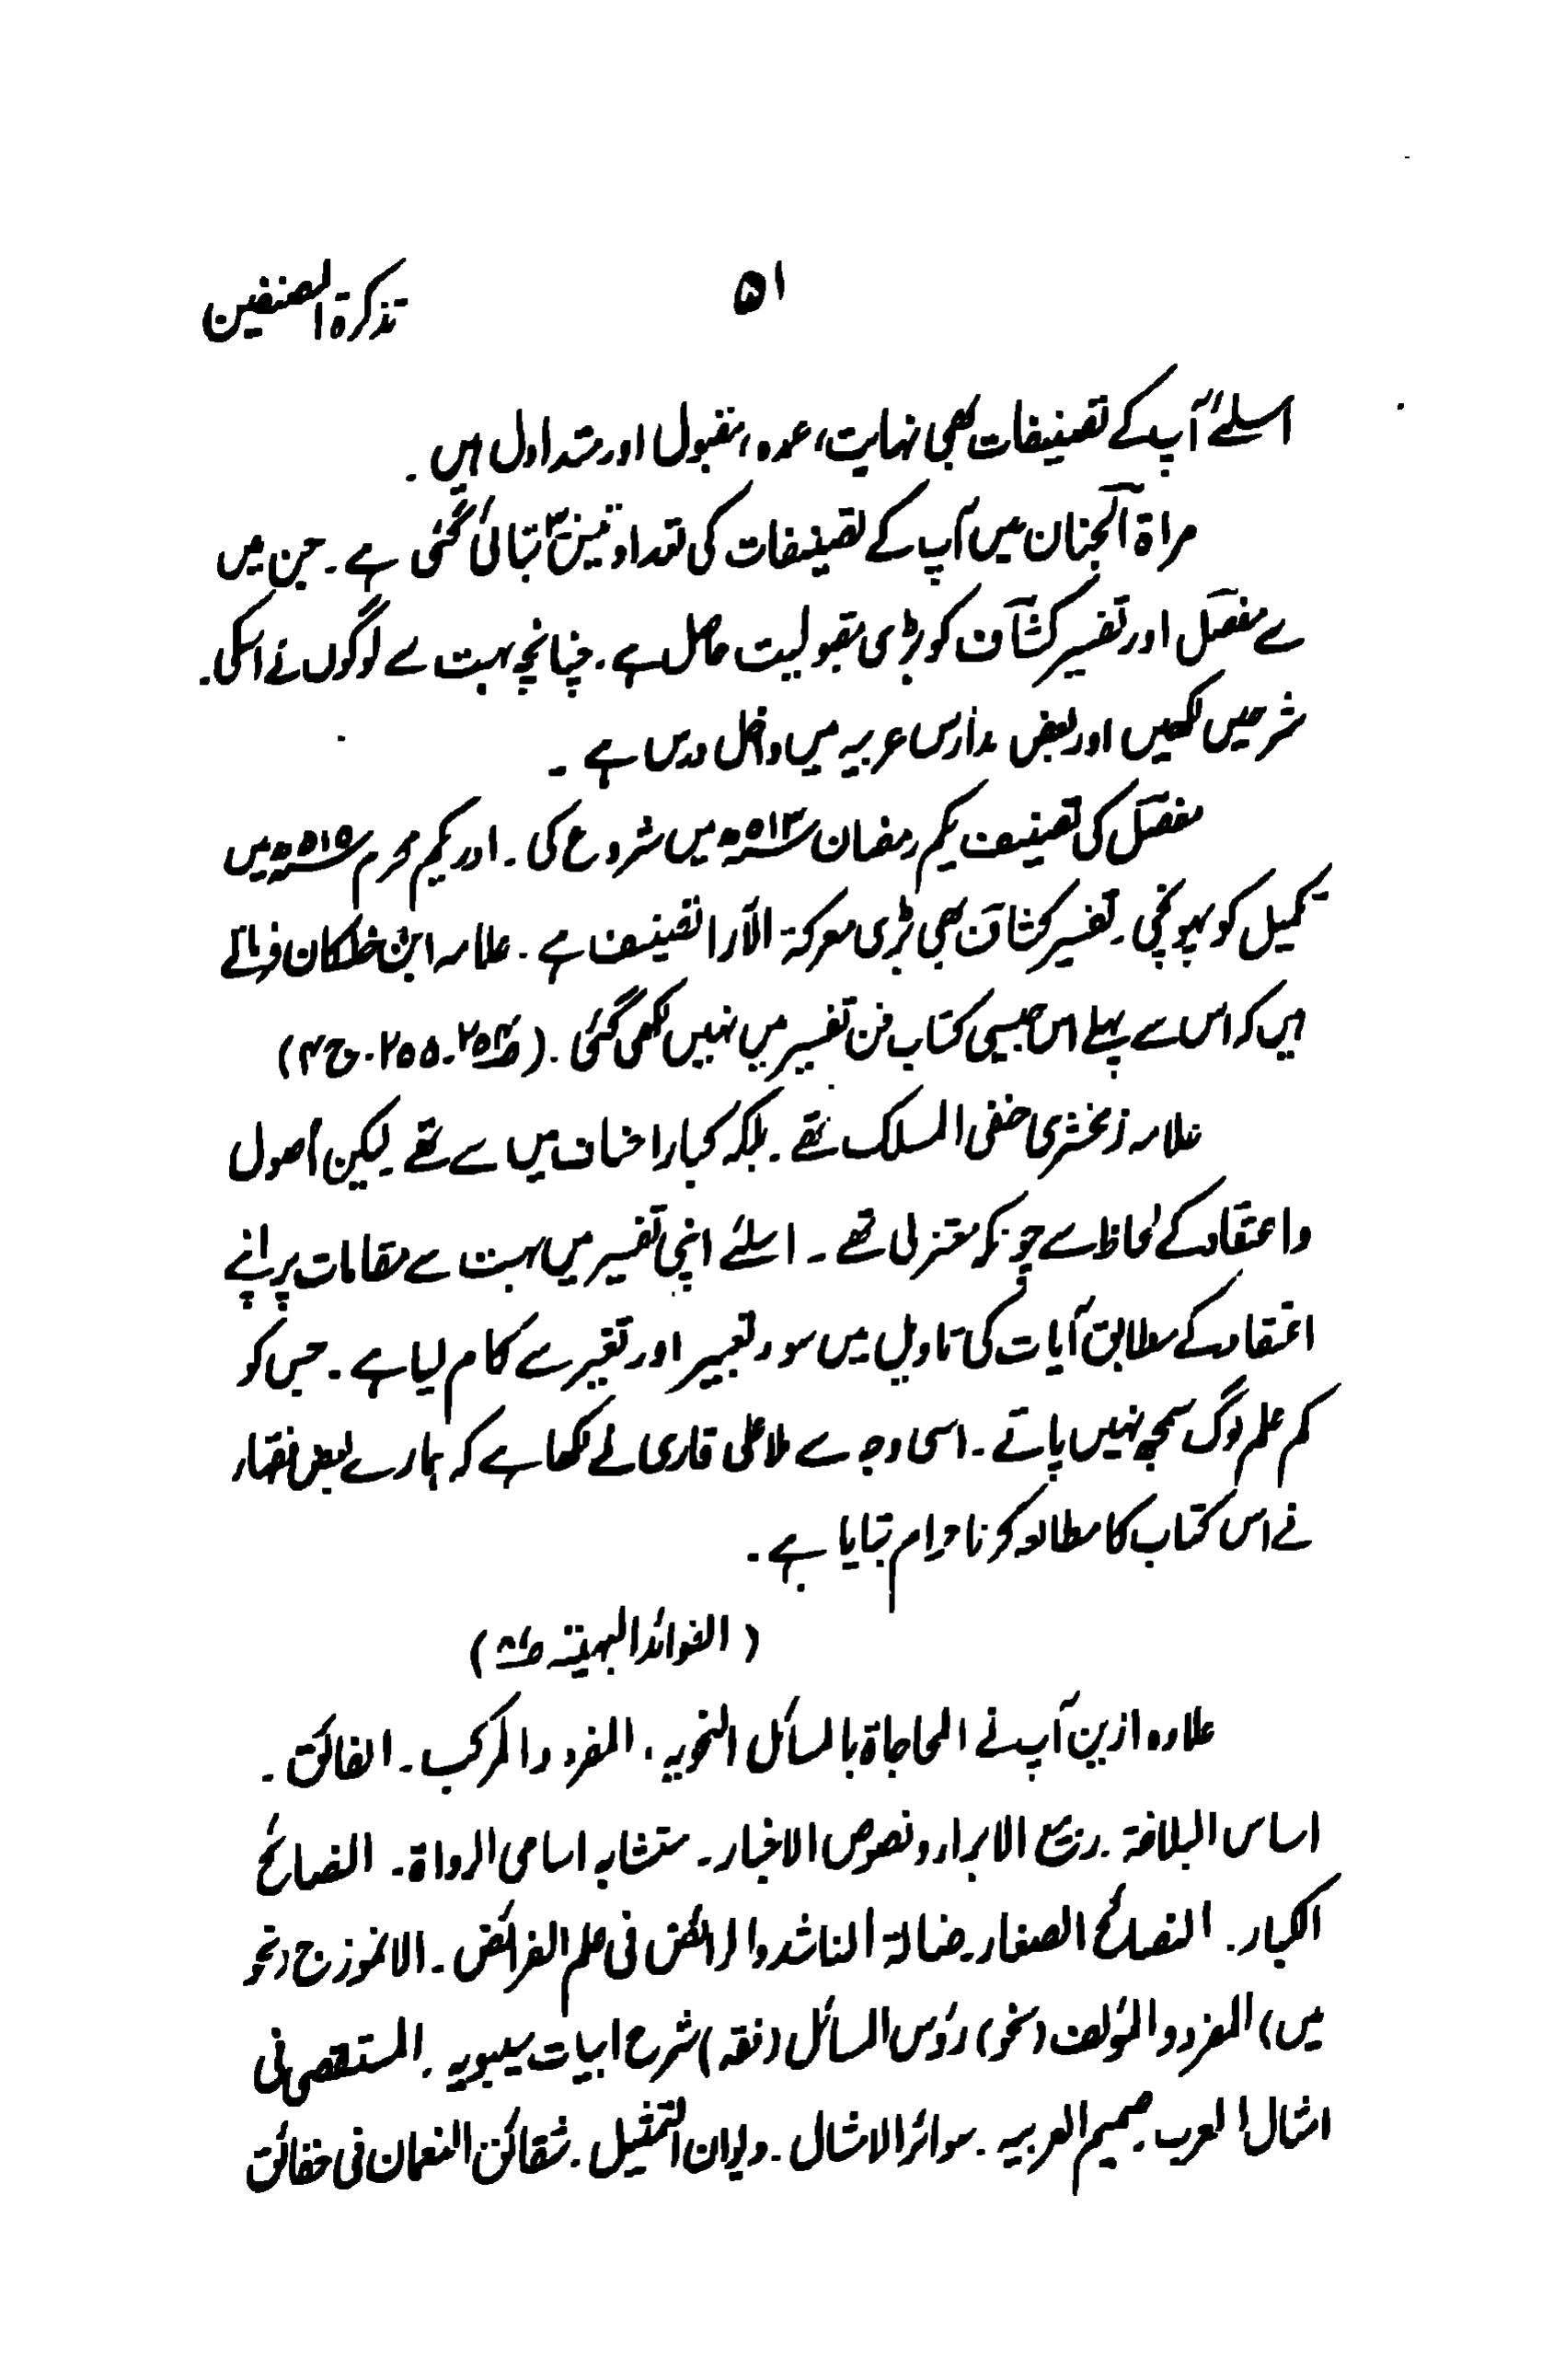 تذکرۃ المصنفین
۵۱
اسلئے آپ کے تصنیفات بھی نہایت، عمدہ، مقبول اور متداول ہیں۔
مراۃ الجنان میں آپ کے تصنیفات کی تعداد تیس۳۰ بتائی گئی ہے۔ جن میں
سے مفصّل اور تفسیر کشّاف کو بڑی مقبولیت حاصل ہے۔ چنانچہ بہت سے لوگوں نے اسکی
شرحیں لکھیں اور بعض مدارس عربیہ میں داخل درس ہے۔
مفصّل کی تصنیف یکم رمضان ۵۱۳ھ میں شروع کی۔ اور یکم محرم ۵۱۵ھ میں
تکمیل کو پہونچی۔ تفسیر کشاف بھی بڑی معرکۃ الآرا تصنیف ہے۔ علامہ ابن خلکان فرماتے
ہیں کہ اس سے پہلے اس جیسی کتاب فن تفسیر میں نہیں لکھی گئی۔ (ص۲۵۴۔۲۵۵۔ ج۴)
علامہ زمخشری حنفی المسلک تھے۔ بلکہ کبار احناف میں سے تھے لیکن اصول
و اعتقاد کے لحاظ سے چونکہ معتزلی تھے۔ اسلئے اپنی تفسیر میں بہت سے مقامات پر اپنے
اعتقاد کے مطابق آیات کی تاویل میں سوء تعبیر اور تغیر سے کام لیا ہے۔ جس کو
کم علم لوگ سمجھ نہیں پاتے۔ اسی وجہ سے ملا علی قاری نے لکھا ہے کہ ہمارے بعض فقہاء
نے اس کتاب کا مطالعہ کرنا حرام بتایا ہے۔
(الفوائد البہیۃ)
علاوہ ازیں آپ نے المحاجاۃ بالمسائل النحویہ، المفرد والمرکب۔ الفائق۔
اساس البلاغۃ۔ ربیع الابرار و نصوص الاخبار۔ متشابہ اسامی الرواۃ۔ النصائح
الکبار۔ النصائح الصغار۔ ضالۃ الناشد والرائض فی علم الفرائض۔ الانموزج (نحو
میں) المفرد والمؤلف (نحو) رؤس المسائل (فقہ) شرح ابیات سیبویہ۔ المستقصیٰ فی
امثال العرب۔ صمیم العربیہ۔ سوائر الامثال۔ دیوان التمثیل۔ شقائق النعمان فی حقائق